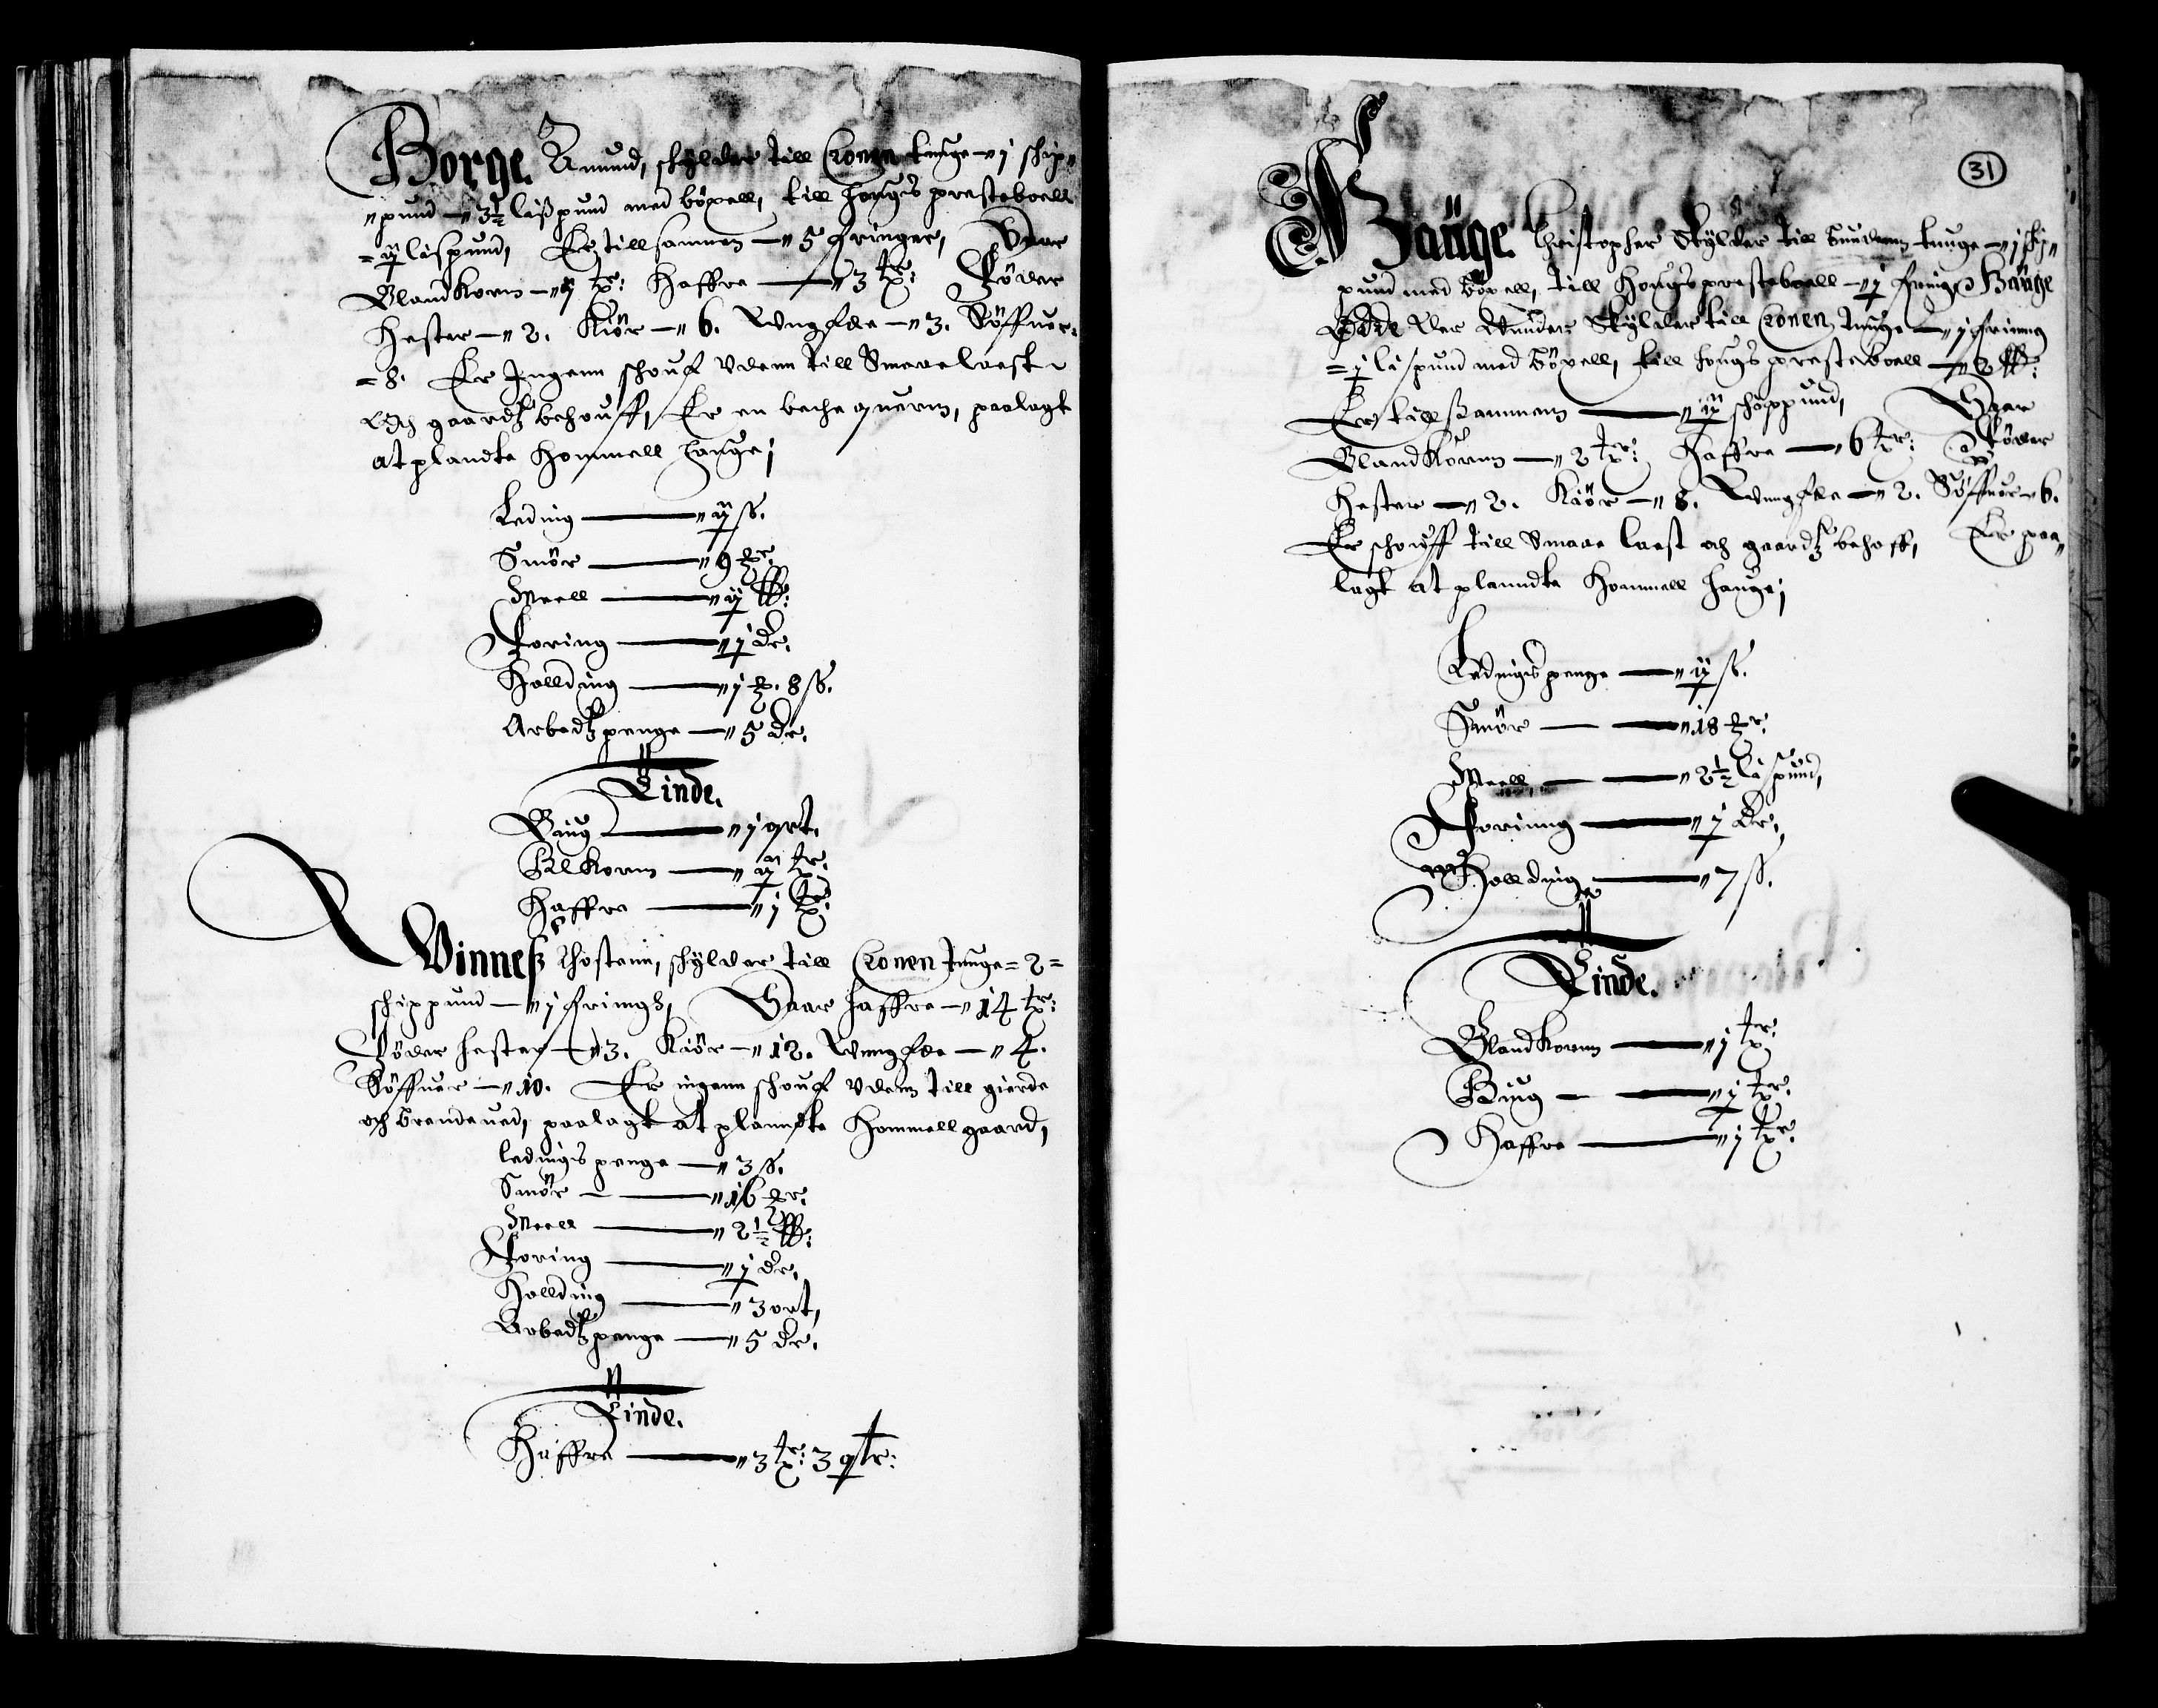 Borge. Amund, skylder till Cronen tuuge — j skip-
pund — 3½ lißpund med böxell, till Hougs presteboell
= ij lispund, Er tillsammen — 5 fringer, Saar
Blandkorn — 4 tr: Haffre — 3 tr: Föder
Hester — 2. Kiör — 6. Vngfæ — 3. Söffuer
= 8. Er Ingenn skouf vdenn till Smaae laest
och gaardz behouff, Er en beche quern, paalagt
at plandte Hommell Hauge;
Leding — ij ß.
Smör — 9
Meell — ij
Foring — j dr.
Hollding — j 8 ß.
Arbedz penge — 5 dr.
Tinde.
Biug — j qrt.
Blkorn — ij tr:
Haffre — j tr:
Vinneß Thostenn, skylder till Cronen tuuge = 2 =
schippund — j fring, Saar Haffre — 14 tr:
Föder Hester — 3. Kiör — 12. Vngfæ — 4.
Söffuer — 10. Er ingenn skouf vdenn till gierde
och brendeued, paalagt at plannte Hommellgaard,
Ledings penge — 3 ß.
Smör — 16
Meell — 2½
Foring — j dr.
Hollding — 3 ort,
Arbedz penge — 5 dr.
Tinde.
Haffre — 3 tr: 3 qtr:
31
Hauge. Christopher Skylder till tuuge — j ski-
pund med böxell, till Hougs presteboell — j fring Hauge
Skylder till Cronen tuuge — j fring
= j lispund med böxell, till Hougs prestebell — 2
Er tillsammenn — ij schippund, Saar
Blandkornn — 2 tr: Haffre — 6 tr: Föder
Hester — 2. Kiör — 8. Vngfæ — 2. Söffuer 6.
Er skouff till Smaae laest och gaardz behoff, Er paa-
lagt at planndte Hommell Hauge;
Ledings penge — ij ß.
Smör — 18
Meell — 2½ lispund,
Foring — j dr.
Hollding — 7 ß.
Tinde.
Blandkornn — j tr:
Biug — j tr:
Haffre — j tr: